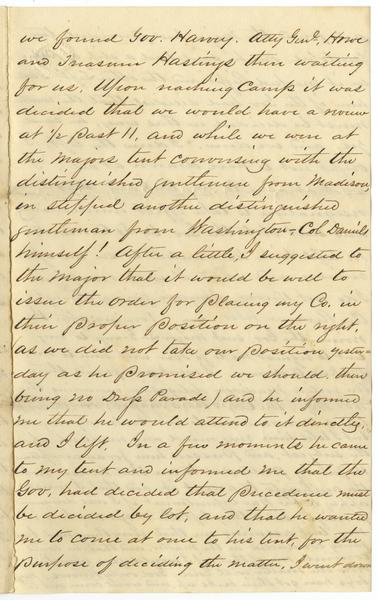 we found Gov. Harvey. Atty Genl, Howe
and Treasurer Hastings then waiting
for us. Upon reaching Camp it was
decided that we would have a review
at ½ past 11, and while we were at
the Majors tent conversing with the
distinguished gentlemen from Madison,
in stepped another distinguished
gentleman from Washington, Col Daniels
himself! After a little, I suggested to
the Major that it would be well to
issue the order for placing my Co. in
their proper position on the right,
as we did not take our position yester-
day as he promised we should. there
being no Dress Parade) and he informed
me that he would attend to it directly,
and I left. In a few moments he came
to my tent and informed me that the
Gov, had decided that precedence must
be decided by lot, and that he wanted
me to come at once to his tent, for the
purpose of deciding the matter, I went down